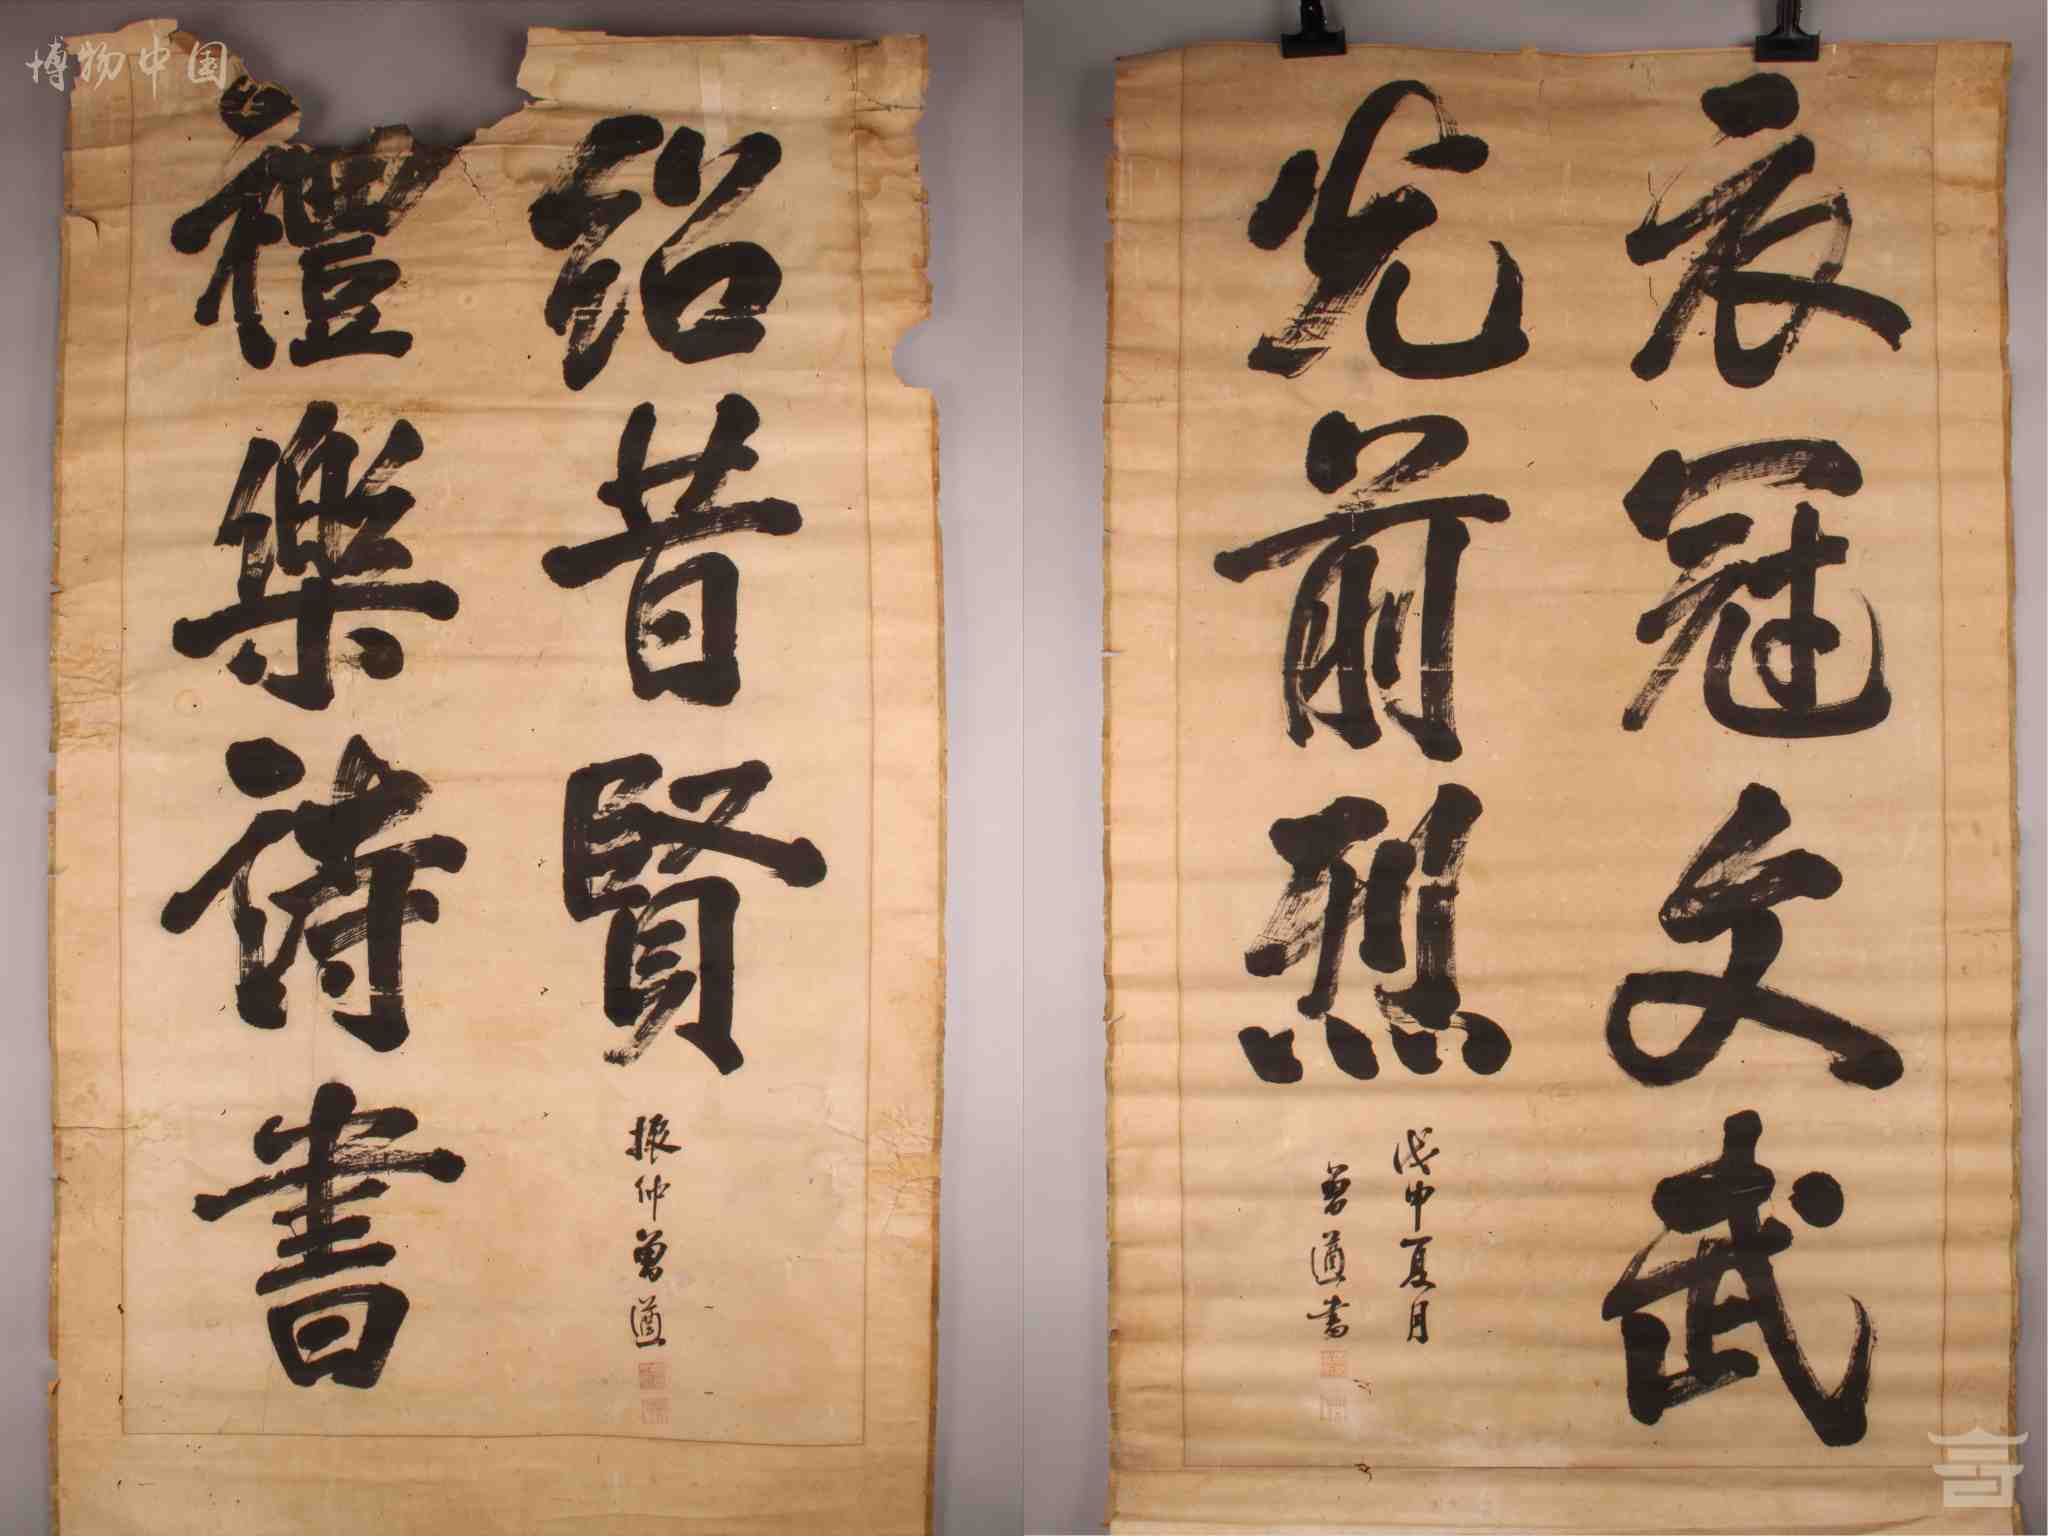 衣冠文武
光前烈
戊申夏月
曾遒書
禮樂詩書
紹昔賢
振仲曾遒
博物中国